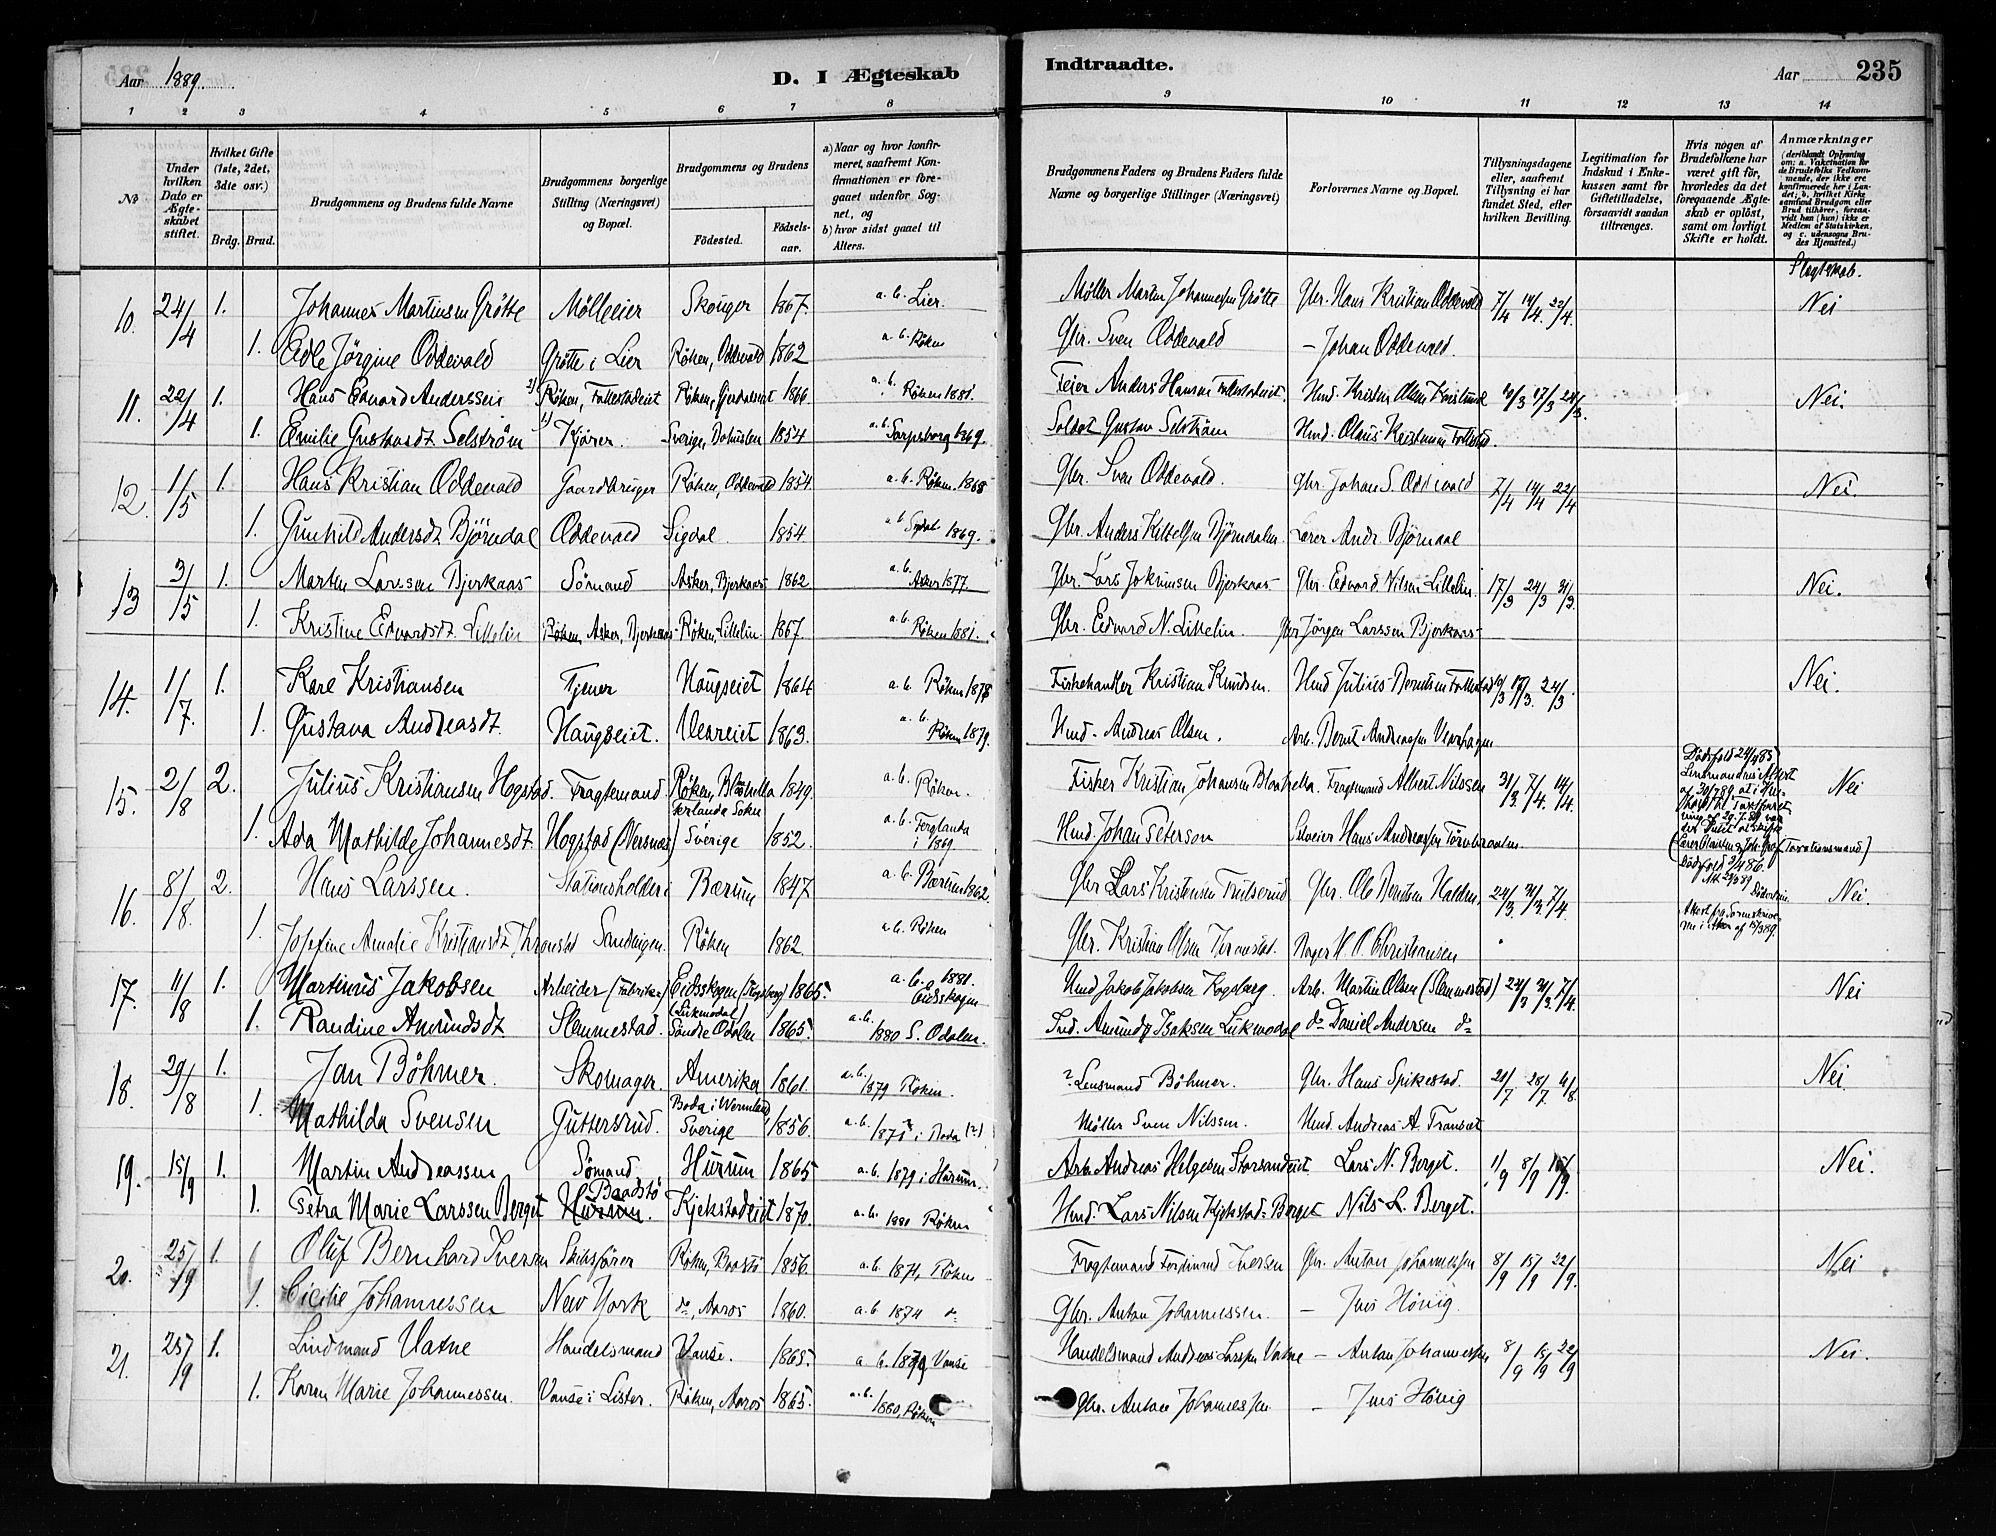 Aar 1889. D. I Ægteskab Indtraadte. Aar 235
1 2 3 4 5 6 7 8 9 10 11 12 13 14
No
Under hvilken Dato er Ægteskabet stiftet.
Hvilket Gifte (1ste, 2det, 3die osv.)
Brdg. Brud.
Brudgommens og Brudens fulde Navne
Brudgommens borgerlige Stilling (Næringsvei) og Bopæl.
Brudgommens og Brudens
Fødested. Fødselsaar.
a) Naar og hvor konfirmeret, saafremt Konfirmationen er foregaaet udenfor Sognet, og
b) hvor sidst gaaet til Alters.
Brudgommens Faders og Brudens Faders fulde Navne og borgerlige Stillinger (Næringsvei)
Forlovernes Navne og Bopæl.
Tillysningsdagene eller, saafremt Tillysning ei har fundet Sted, efter hvilken Bevilling.
Legitimation for Indskud i Enkekassen samt for Giftetilladelse, forsaavidt saadan tiltrænges.
Hvis nogen af Brudefolkene har været gift før, hvorledes da det foregaaende Ægteskab er opløst, samt om lovligt Skifte er holdt.
Anmærkninger (deriblandt Oplysning om: a. Vakcination for de Brudefolks Vedkommende, der ikke ere konfirmerede her i Landet; b. hvilket Kirkesamfund Brudgom eller Brud tilhører, forsaavidt han (hun) ikke er Medlem af Statskirken, og c. udensogns Brudes Hjemsted.)
Slegtskab.
10. 24/4 1. Johannes Martinsen Grøtte Mølleeier Skouger 1867. a. b. Lier. Møller Martin Johannesen Grøtte Gbr. Hans Kristian Oddevald 7/4 14/4. 22/4. Nei
1. Edle Jörgine Oddevald Grøtte i Lier Röken, Oddevald 1862 a. b. Röken Gbr. Sven Oddevald – Johan Oddevald.
11. 22/4 1. Hans Edvard Anderssen 2) Röken, Follestadeiet Röken, 1866 a. b. Röken 1881. Feier Anders Hansen Follestadeiet. Hmd. Kristen Olsen 10/3 17/3 24/3. Nei.
1. Emilie Gustavsdt Selström 1) Kjörer. Sverige, Bohuslen 1854 a. b. Sarpsborg 1869. Soldat Gustav Selström Hmd. Olaus Kristensen
12. 1/5 1. Hans Kristian Oddevald Gaardbruger Röken, Oddevald 1854. a. b. Röken. 1868 Gbr. Sven Oddevald. Gbr. Johan S. Oddevald 7/4 14/4 22/4 Nei.
1. Gunhild Andersdt Björndal Oddevald Sigdal. 1854 a. b. Sigdal 1869. Gbr. Anders Kittelsen Björndalen. Lærer Andr. Björndal
13 3/5 1. Martin Larssen Bjerkaas Sömand Asker, Bjerkaas 1862 a. b. Asker 1877. Gbr. Lars Bjerkaas Gbr. Edvard Nilsen Littelin. 17/3 24/3 31/3. Nei.
1. Kristine Edvardsdt Littelin Röken, Asker, Bjerkaas Röken, Littelin 1867. a. b. Röken 1881. Gbr. Edvard N. Littelin. Gbr Jörgen Larssen Bjerkaas
14. 1/7. 1. Karl Kristiansen Tjener Haugseiet 1864 a. b. Röken 1878 Fiskehandler Kristian Knudsen. Hmd Julius Berntsen 10/3 17/3. 24/3. Nei.
1. Gustava Andreasdt. Haugseiet. Veareiet 1863. a. b. Röken 1879. Hmd. Andreas Olsen. Arb. Bernt Andreassen
15. 2/8 2. Julius Kristiansen Hogstad. Fragtemand. Röken, 1849. a. b. Röken. Fisker Kristian Johansen Fragtemand Albert Nilssen 31/3. 7/4. 14/4. Nei
1. Ada Mathilde Johannesdt Hogstad Sverige 1852. a. b. i 1869 Hmd. Johan Peterson Selveier Hans Andreassen
16. 8/8. 2. Hans Larssen. Stationsholder i Bærum 1847 a. b. Bærum 1862. Gbr Lars Kristensen Gbr. Ole Berntsen 24/3 31/3. 7/4. Nei.
1. Josefine Amalie Kristiansdt Sandvigen. Röken 1862. a. b. Röken Gbr. Kristian Olsen Bager H. O. Christiansen
17. 11/8 1. Martinus Jakobsen Arbeider (Fabriken) Eidsskogen 1865. a. b. 1881. Eidsskogen Hmd Jakob Jakobsen Arb. Martin Olsen (Slemmestad) 24/3 31/3. 7/4. Nei
1. Randine Amundsdt Slemmestad. Söndre Odalen 1865. a. b. 1880 S. Odalen. Ind. Amund Isaksen do Daniel Andersen do
18. 29/8 1. Jan Böhmer. Skomager. Amerika 1861. a. b. 1879 Röken. ? Lensmand Böhmer. Gbr. Hans Spikestad. 21/7 28/7. 4/8. Nei.
1. Mathilda Svensen Guttersrud. Boda i Wermland Sverige 1856. a. b. 1871 i Boda (?) Møller Sven Nilssen. Hmd. Andreas A.
19. 15/9 1. Martin Andreassen Sömand Hurum 1865 a. b. 1879 i Hurum. Arb. Andreas Helgesen Storsandeiet Lars N. Berget. 1/9 8/9 15/9. Nei.
1. Petra Marie Larssen Berget Hurum. Baadstö Kjekstadeiet 1870. a. b. Röken Hmd. Lars Nilsen Kjekstad-Berget Nils L. Berget.
20. 25/9 1. Oluf Bernhard Iversen Skibsförer Röken, Baastö 1856. a. b. 1871, Röken Fragtemand Ferdinand Iversen Gbr. Anton Johannessen 8/9 15/9 22/9. Nei
1. Cicilie Johannessen New York do, Aaros 1860. a. b 1874 do Gbr. Anton Johannessen. – Jens Hönig.
21. 25/9 1. Lindmand Vatne Handelsmand Vanse. 1865. a. b. 1879 Vanse Handelsmand Andreas Larsen Vatne – Anton Johannessen 8/9 15/9 22/9 Nei.
1. Karen Marie Johannessen. Vanse i Lister. Röken, Aaros 1865. a. b. 1880, Röken Gbr. Anton Johannessen – Jens Hönig